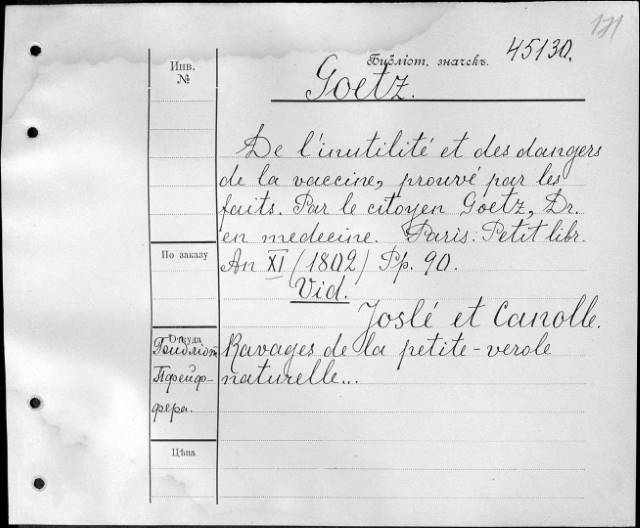 171
Инв.
№
Библіот. значекъ.
45130.
Goetz.
De l'inutilité et des dangers
de la vaccine, prouvé par les
faits. Par le citoyen Goetz, Dr.
en medecine. Paris: Petit libr.
По заказу
An XI (1802) Pp. 90.
Vid.
Joslé et Canolle.
Откуда
Ravages de la petite-verole
naturelle...
Пфейф-
фера.
Цѣна